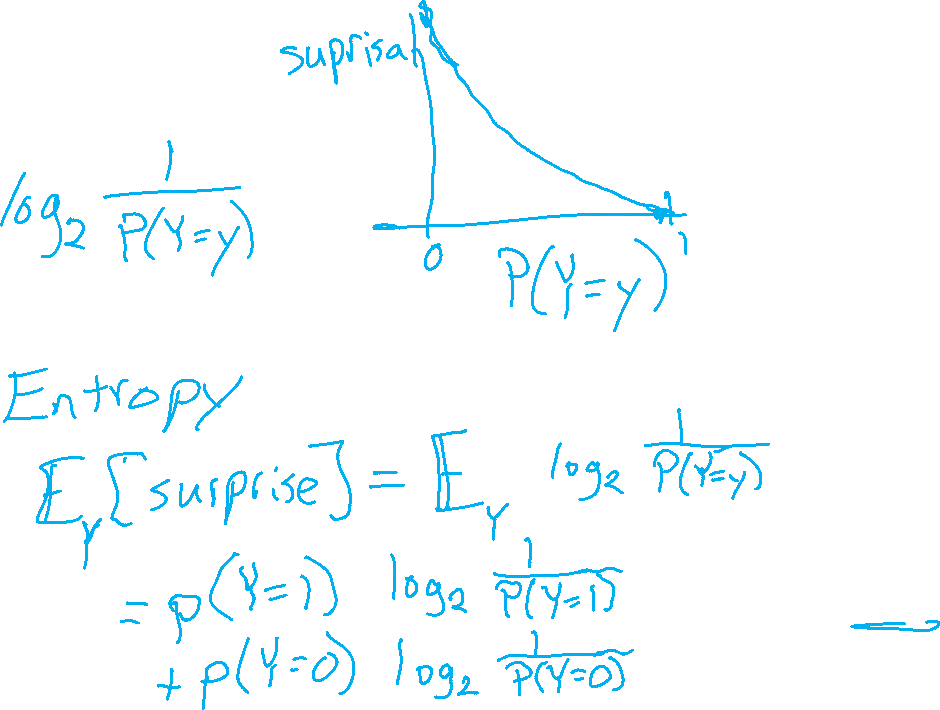 suprisal
log₂ 1/P(Y=y)
0 1
P(Y=y)
Entropy
𝔼_Y[surprise] = 𝔼_Y log₂ 1/P(Y=y)
= p(Y=1) log₂ 1/P(Y=1)
+ p(Y=0) log₂ 1/P(Y=0)